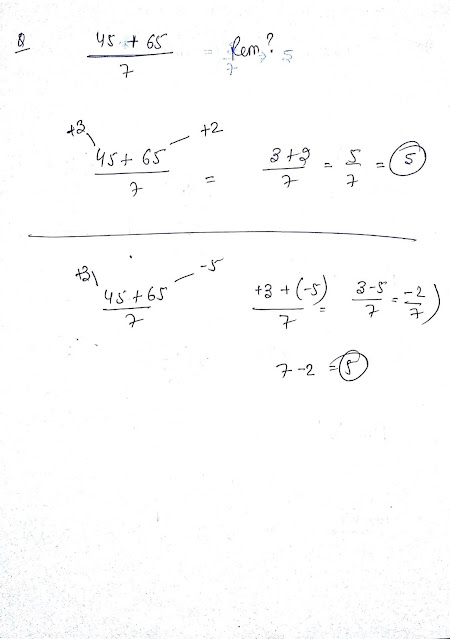 Q 45 + 65 / 7 = Rem?
+3 +2
45 + 65 / 7 = 3+2 / 7 = 5 / 7 = 5
+3 -5
45 + 65 / 7 +3 + (-5) / 7 = 3-5 / 7 = -2 / 7 )
7-2 = 5